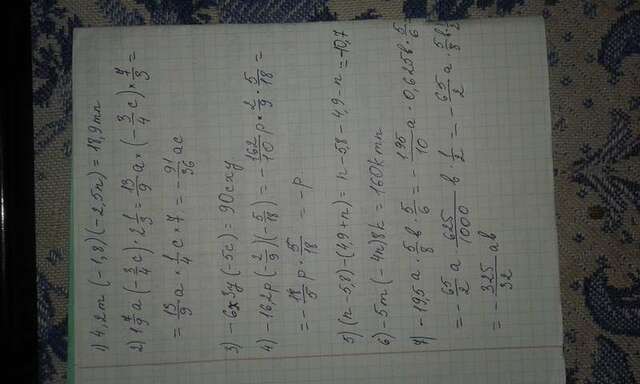 1) 4,2m (-1,8)(-2,5n) = 18,9mn
2) 1 7/9 a (-3/4 c) · 2 1/3 = 13/9 a × (-3/4 c) × 7/3 =
= 13/9 a × 1/4 c × 7 = -91/36 ac
3) -6x3y (-5c) = 90cxy
4) -16,2p (-2/9)(-5/18) = -162/10 p × 2/9 · 5/18 =
= -18/5 p · 5/18 = -p
5) (n-5,8)-(4,9+n) = n-5,8-4,9-n = -10,7
6) -5m (-4n)8k = 160kmn
7) -19,5a · 5/8 в · 5/6 = -195/10 a · 0,625в · 5/6
= -65/2 a · 625/1000 в · 1/2 = -65/2 a · 5/8 в ·
= -325/32 ав